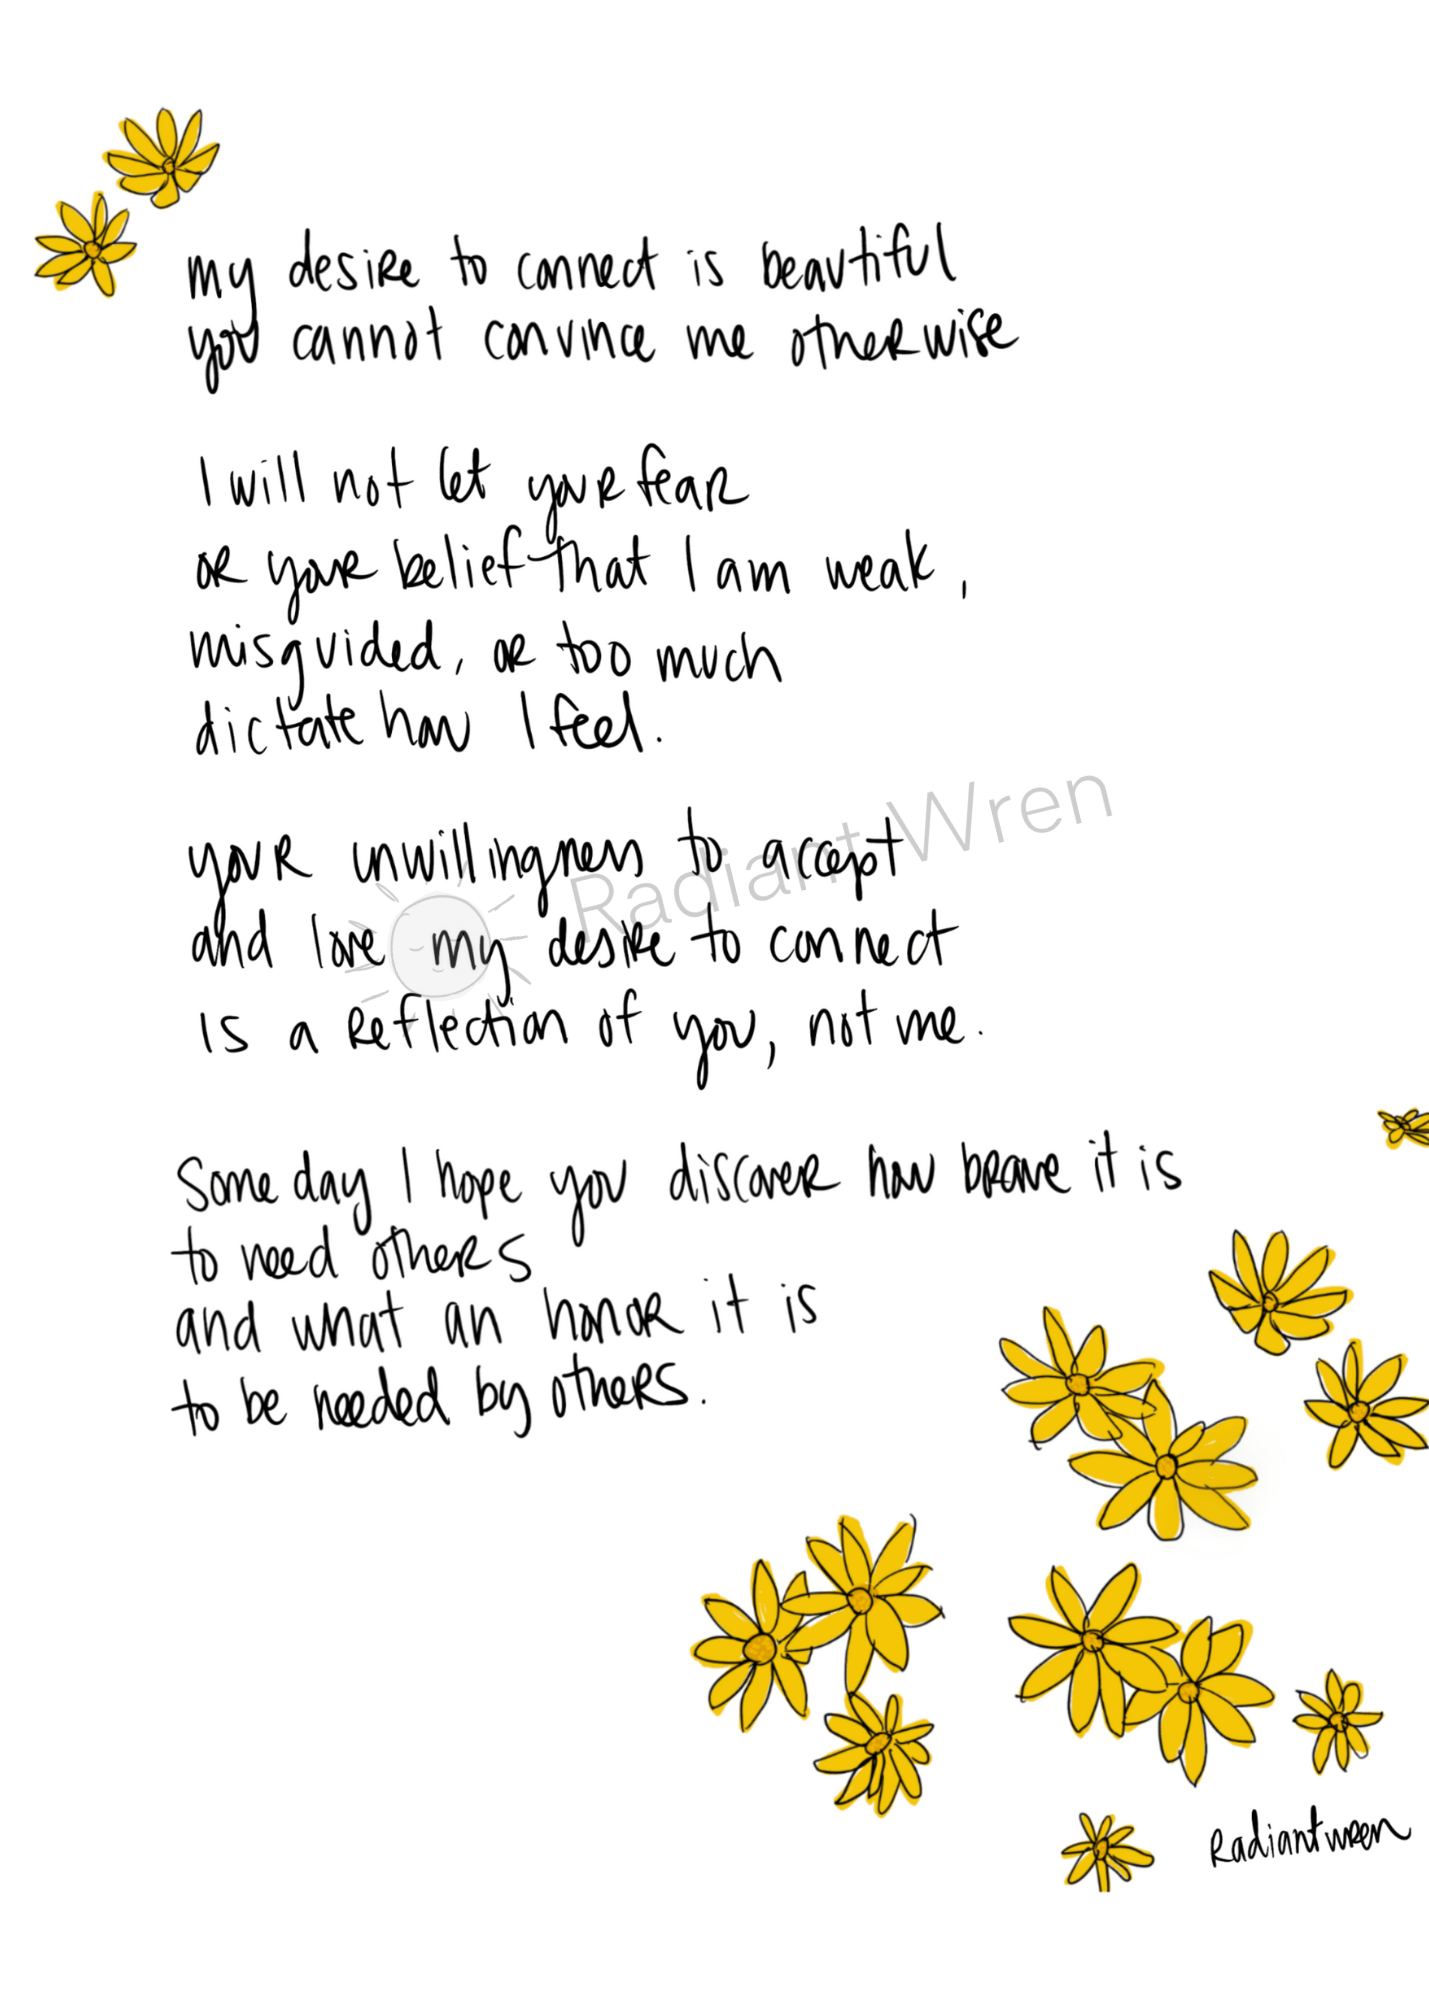 my desire to connect is beautiful
you cannot convince me otherwise
I will not let your fear
or your belief that I am weak,
misguided, or too much
dictate how I feel.
your unwillingness to accept
and love my desire to connect
is a reflection of you, not me.
Some day I hope you discover how brave it is
to need others
and what an honor it is
to be needed by others.
Radiant Wren
Radiantwren